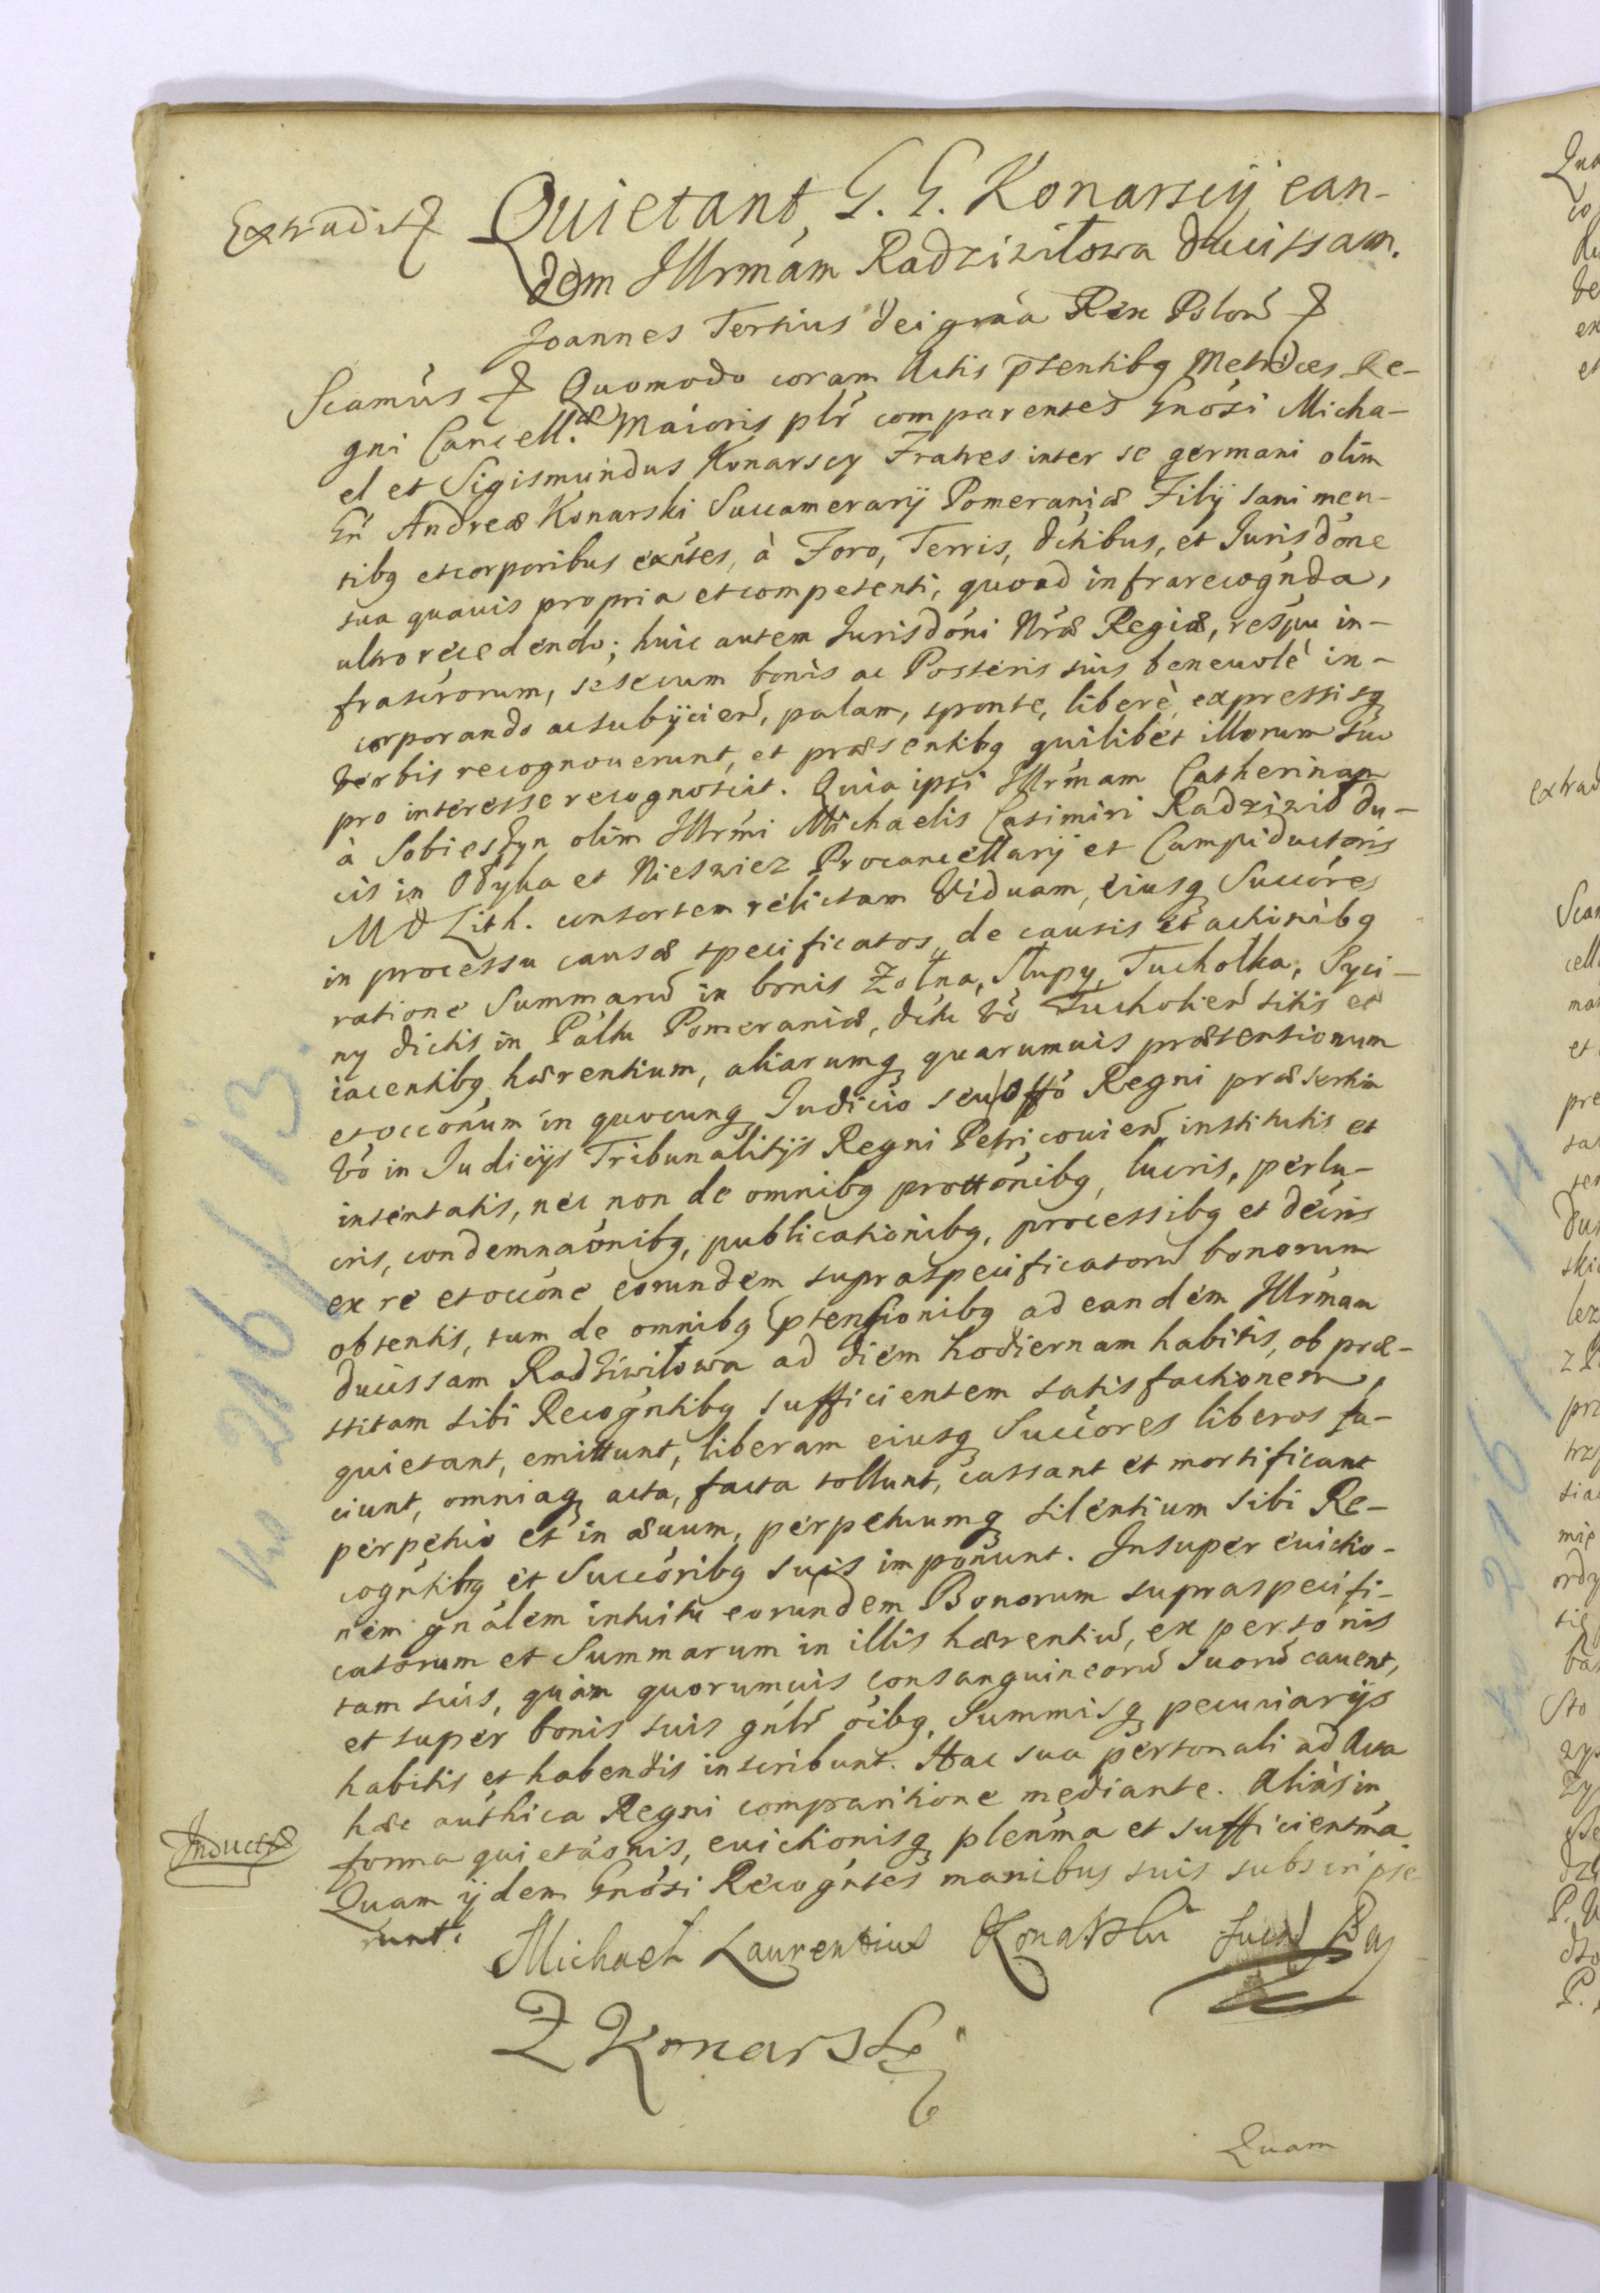 Extradit
Quietant, G. G. Konarscÿ ean-
dem Illrmam Radziwiłowa ducissam.
Joannes Tertius dei graa Rex Polon
Scamus Quomodo coram Actis pntibg Metrices Re-
gni Cancell.æ Maioris plr comparentes Gnosi Micha-
el et Sigismundus Konarscy Fratres inter se germani olim
Gn Andreæ Konarski Succamerarÿ Pomeraniæ Filÿ sani men-
tibg et corporibus exntes, à Foro, Terris, dctibus, et Jurisdone
sua quavis propria et competenti, quoad infrarecognda,
ultro recedendo; huic autem Jurisdoni Nræ Regiæ, respu in-
frascrorum, sese cum bonis ac Posteris suis beneuolè in-
corporando ac subÿcien, palam, sponte, liberè, expressisq
verbis recognouerunt, et præsentibg quilibet illorum suo
pro interesse recognoscit. Quia ipsi Illrmam Catherinam
à Sobieszyn olim Illrmi Michaelis Casimiri Radziwił du-
cis in Ołyka et Nieswiez Procancellarÿ et Campiductoris
M D Lith. consortem relictam Viduam, eiusq Succores
in processu causæ specificatos, de causis et actionibg
ratione Summaru in bonis Zołna, Słupy, Tucholka, Syci-
ny dictis in Paltu Pomeraniæ, dctu vo Tucholien sitis et
iacentibg hærentium, aliarumq quarumuis prætensionum
et occonum in quocunq Judicio seu Offo Regni præsertim
vo in Judicÿs Tribunalitÿs Regni Petricouien institutis et
intentatis, nec non de omnibg protтonibg, lucris, perlu-
cris, condemnaonibg, publicationibg, processibg et decris
ex re et occone eorundem supraspecificatoru bonorum
obtentis, tum de omnibg ptensionibg ad eandem Illrmam
ducissam Radziwiłowa ad diem hodiernam habitis, ob præ-
stitam sibi Recogntibg sufficientem satisfactionem,
quietant, emittunt, liberam eiusq Succores liberos fa-
ciunt, omniaq acta, facta tollunt, cassant et mortificant
perpetuo et in æuum, perpetuumq silentium sibi Re-
cogntibg et Succoribg suis imponunt. Insuper euictio-
nem gnalem intuitu eorundem Bonorum supraspecifi-
catorum et Summarum in illis hærentiu, ex personis
tam suis, quàm quorumuis consanguineoru suoru cauent,
et super bonis suis gnlr oibg, Summisq pecuniarÿs
habitis et habendis inscribunt. Hac sua personali ad Acta
hæc authica Regni comparitione mediante. Aliàs in
forma quietaonis, euictionisq plenma et sufficientma
Quam ÿdem Gnosi Recogntes manibus suis subscripse-
runt.
Induct
Michael Laurentius Konarski
Z Konarski
Quam
No 216 / 13